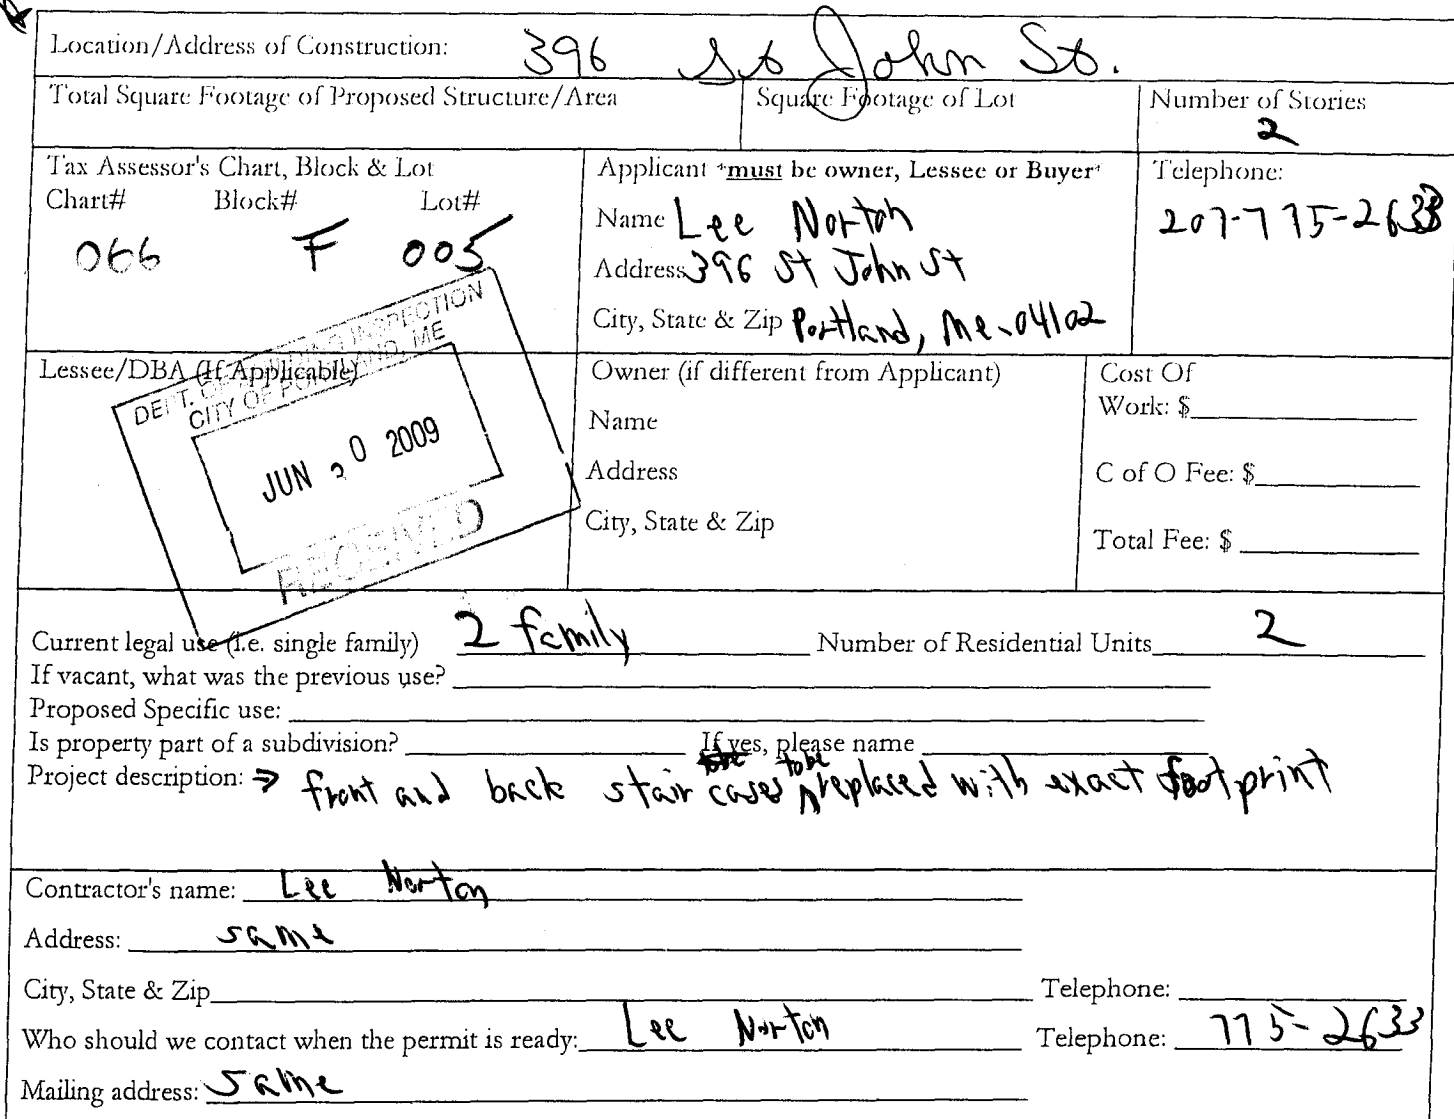 Location/Address of Construction: 396 St John St.
Total Square Footage of Proposed Structure/Area
Square Footage of Lot
Number of Stories
2
Tax Assessor's Chart, Block & Lot
Chart# Block# Lot#
066 F 005
Applicant *must be owner, Lessee or Buyer*
Name Lee Norton
Address 396 St John St
City, State & Zip Portland, Me. 04102
Telephone:
207-775-2633
Lessee/DBA (If Applicable)
DEPT. OF BUILDING INSPECTION
CITY OF PORTLAND, ME
JUN 0 2009
RECEIVED
Owner (if different from Applicant)
Name
Address
City, State & Zip
Cost Of
Work: $
C of O Fee: $
Total Fee: $
Current legal use (i.e. single family) 2 family Number of Residential Units 2
If vacant, what was the previous use?
Proposed Specific use:
Is property part of a subdivision? If yes, please name
Project description: → front and back stair cases to be replaced with exact footprint
Contractor's name: Lee Norton
Address: same
City, State & Zip Telephone:
Who should we contact when the permit is ready: Lee Norton Telephone: 775-2633
Mailing address: same